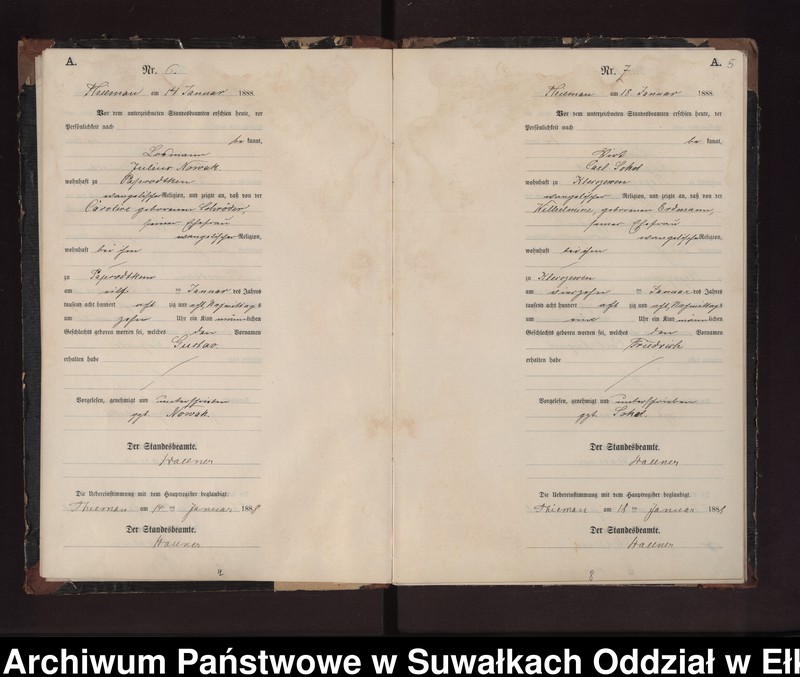 A.
Nr. 6.
am 14 Januar 1888.
Vor dem unterzeichneten Standesbeamten erschien heute, der
Persönlichkeit nach
be kannt,
Losmann
Julius Nowak
wohnhaft zu Paprodtken
evangelischer Religion, und zeigte an, daß von der
Caroline geborenen Schröder,
seiner Ehefrau
evangelischer Religion,
wohnhaft bei ihm
zu Paprodtken
am elften Januar des Jahres
tausend acht hundert acht zig und acht, Vormittags
um zehn Uhr ein Kind männlichen
Geschlechts geboren worden sei, welches den Vornamen
Gustav
erhalten habe
Vorgelesen, genehmigt und unterschrieben
ggz. Nowak.
Der Standesbeamte.
Die Uebereinstimmung mit dem Hauptregister beglaubigt.
am 14 ten Januar 1888
Der Standesbeamte.
A. 5
Nr. 7
am 18 Januar 1888.
Vor dem unterzeichneten Standesbeamten erschien heute, der
Persönlichkeit nach
be kannt,
Wirt
Carl Sokol
wohnhaft zu
evangelischer Religion, und zeigte an, daß von der
Wilhelmine, geborenen Erdmann,
seiner Ehefrau
evangelischer Religion,
wohnhaft bei ihm
zu
am vierzehn ten Januar des Jahres
tausend acht hundert acht zig und acht, Nachmittags
um eins Uhr ein Kind männlichen
Geschlechts geboren worden sei, welches den Vornamen
Friedrich
erhalten habe
Vorgelesen, genehmigt und unterschrieben
ggz. Sokol.
Der Standesbeamte.
Die Uebereinstimmung mit dem Hauptregister beglaubigt.
am 18 ten Januar 1888
Der Standesbeamte.
8
Archiwum Państwowe w Suwałkach Oddział w Ełk